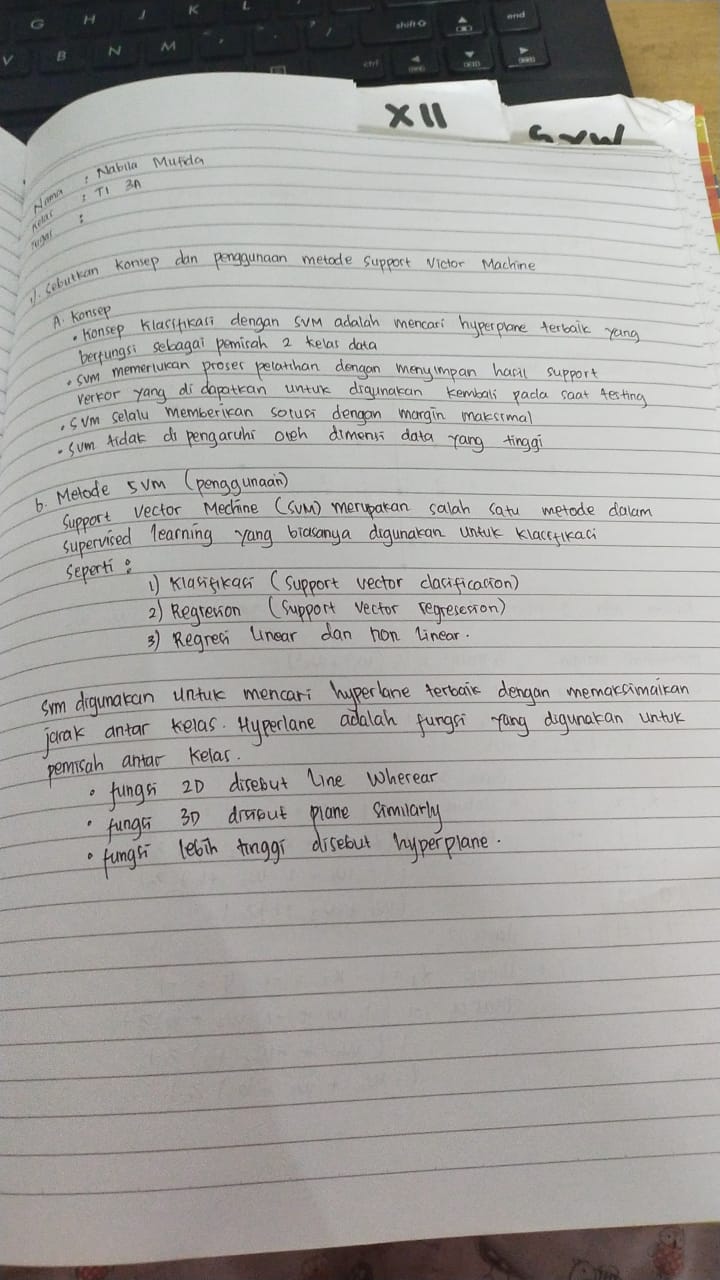 G H J K L
shift
end
V B N M
ctrl
XII
Nama : Nabila Mufida
Kelas : TI 3A
Tugas :
1). Sebutkan konsep dan penggunaan metode Support Victor Machine
A. Konsep
• Konsep Klasifikasi dengan SVM adalah mencari hyperplane terbaik yang
berfungsi sebagai pemisah 2 kelas data
• SVM memerlukan proses pelatihan dengan menyimpan hasil support
verkor yang di dapatkan untuk digunakan kembali pada saat testing
• SVM selalu memberikan solusi dengan margin maksimal
• SVM tidak di pengaruhi oleh dimensi data yang tinggi
b. Metode SVM (penggunaan)
Support Vector Mechine (SVM) merupakan salah satu metode dalam
supervised learning yang biasanya digunakan untuk klassfikasi
seperti :
1) Klasifikasi (Support vector clasification)
2) Regresion (Support vector regresesion)
3) Regresi linear dan non linear.
SVM digunakan untuk mencari hyperlane terbaik dengan memaksimalkan
jarak antar kelas. Hyperlane adalah fungsi yang digunakan untuk
pemisah antar kelas.
• fungsi 2D disebut line wherear
• fungsi 3D disebut plane similarly
• fungsi lebih tinggi disebut hyperplane.